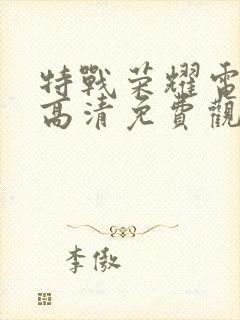 特戰榮耀電
高清免費觀
李傲